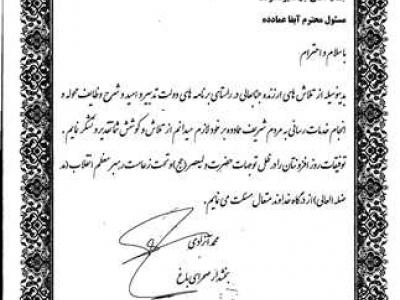 مسئول محترم آبفا عمادده
با سلام و احترام
بدینوسیله از تلاش های ارزنده جنابعالی در راستای برنامه های دولت تدبیر و امید و شرح وظایف محوله و
انجام خدمات رسانی به مردم شریف عمادده بر خود لازم میدانم از تلاش و کوشش شما تقدیر و تشکر نمایم.
توفیقات روز افزونتان را در ظل توجهات حضرت ولیعصر (عج) و تحت زعامت رهبر معظم انقلاب (مد
ضله العالی) از درگاه خداوند متعال مسئلت می نمایم.
محمد آزادی
بخشدار صحرای باغ